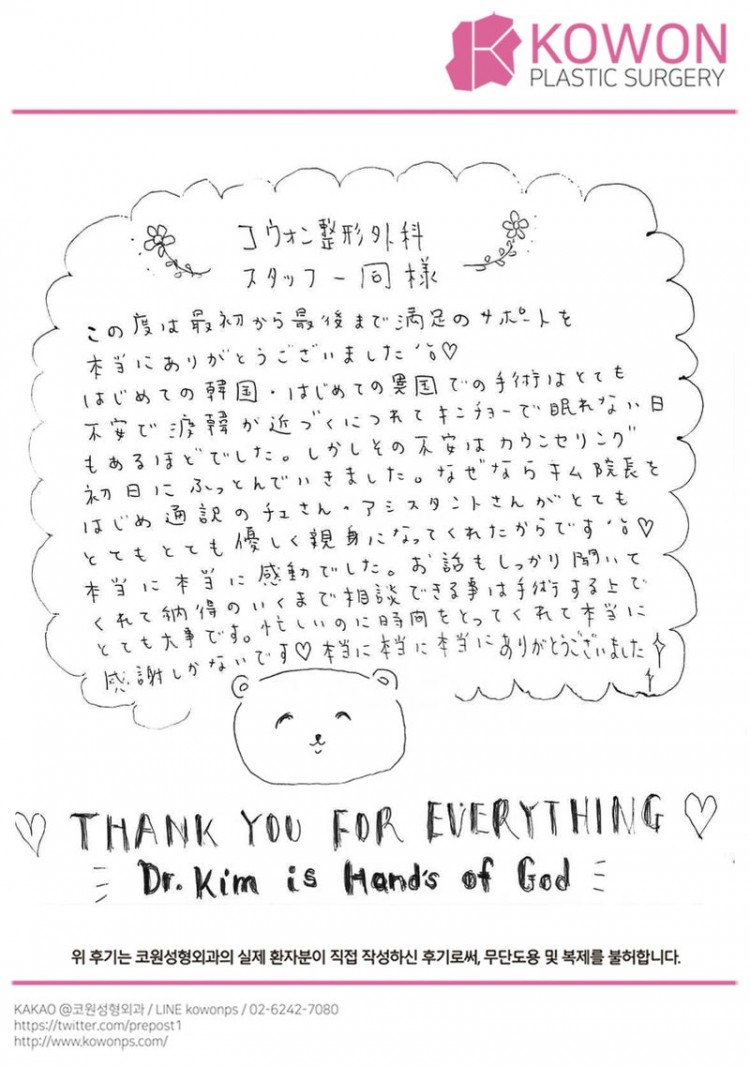 KOWON
PLASTIC SURGERY
コウォン整形外科
スタッフ一同様
この度は最初から最後まで満足のサポートを
本当にありがとうございました♡
はじめての韓国・はじめての異国での手術はとても
不安で渡韓が近づくにつれてキンチョーで眠れない日
もあるほどでした。しかしその不安はカウンセリング
初日にふっとんでいきました。なぜならキム院長を
はじめ通訳のチェさん・アシスタントさんがとても
とてもとても優しく親身になってくれたからです♡
本当に本当に感動でした。お話もしっかり聞いて
くれて納得のいくまで相談できる事は手術する上で
とても大事です。忙しいのに時間をとってくれて本当に
感謝しかないです♡本当に本当に本当にありがとうございました
♡ THANK YOU FOR EVERYTHING ♡
Dr. Kim is Hand's of God
위 후기는 코원성형외과의 실제 환자분이 직접 작성하신 후기로써, 무단도용 및 복제를 불허합니다.
KAKAO @코원성형외과 / LINE kowonps / 02-6242-7080
https://twitter.com/prepost1
http://www.kowonps.com/